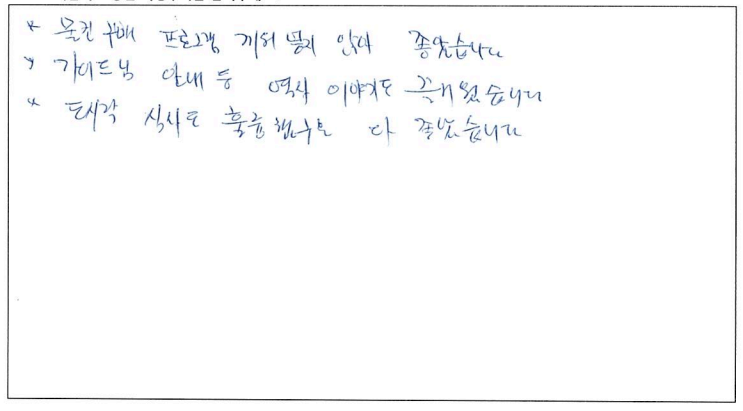 * 물건 구매 프로그램 끼워 넣지 않아 좋았습니다
* 가이드님 안내 등 역사 이야기도 즐거웠습니다
* 도시락 식사도 훌륭했구요 다 좋았습니다